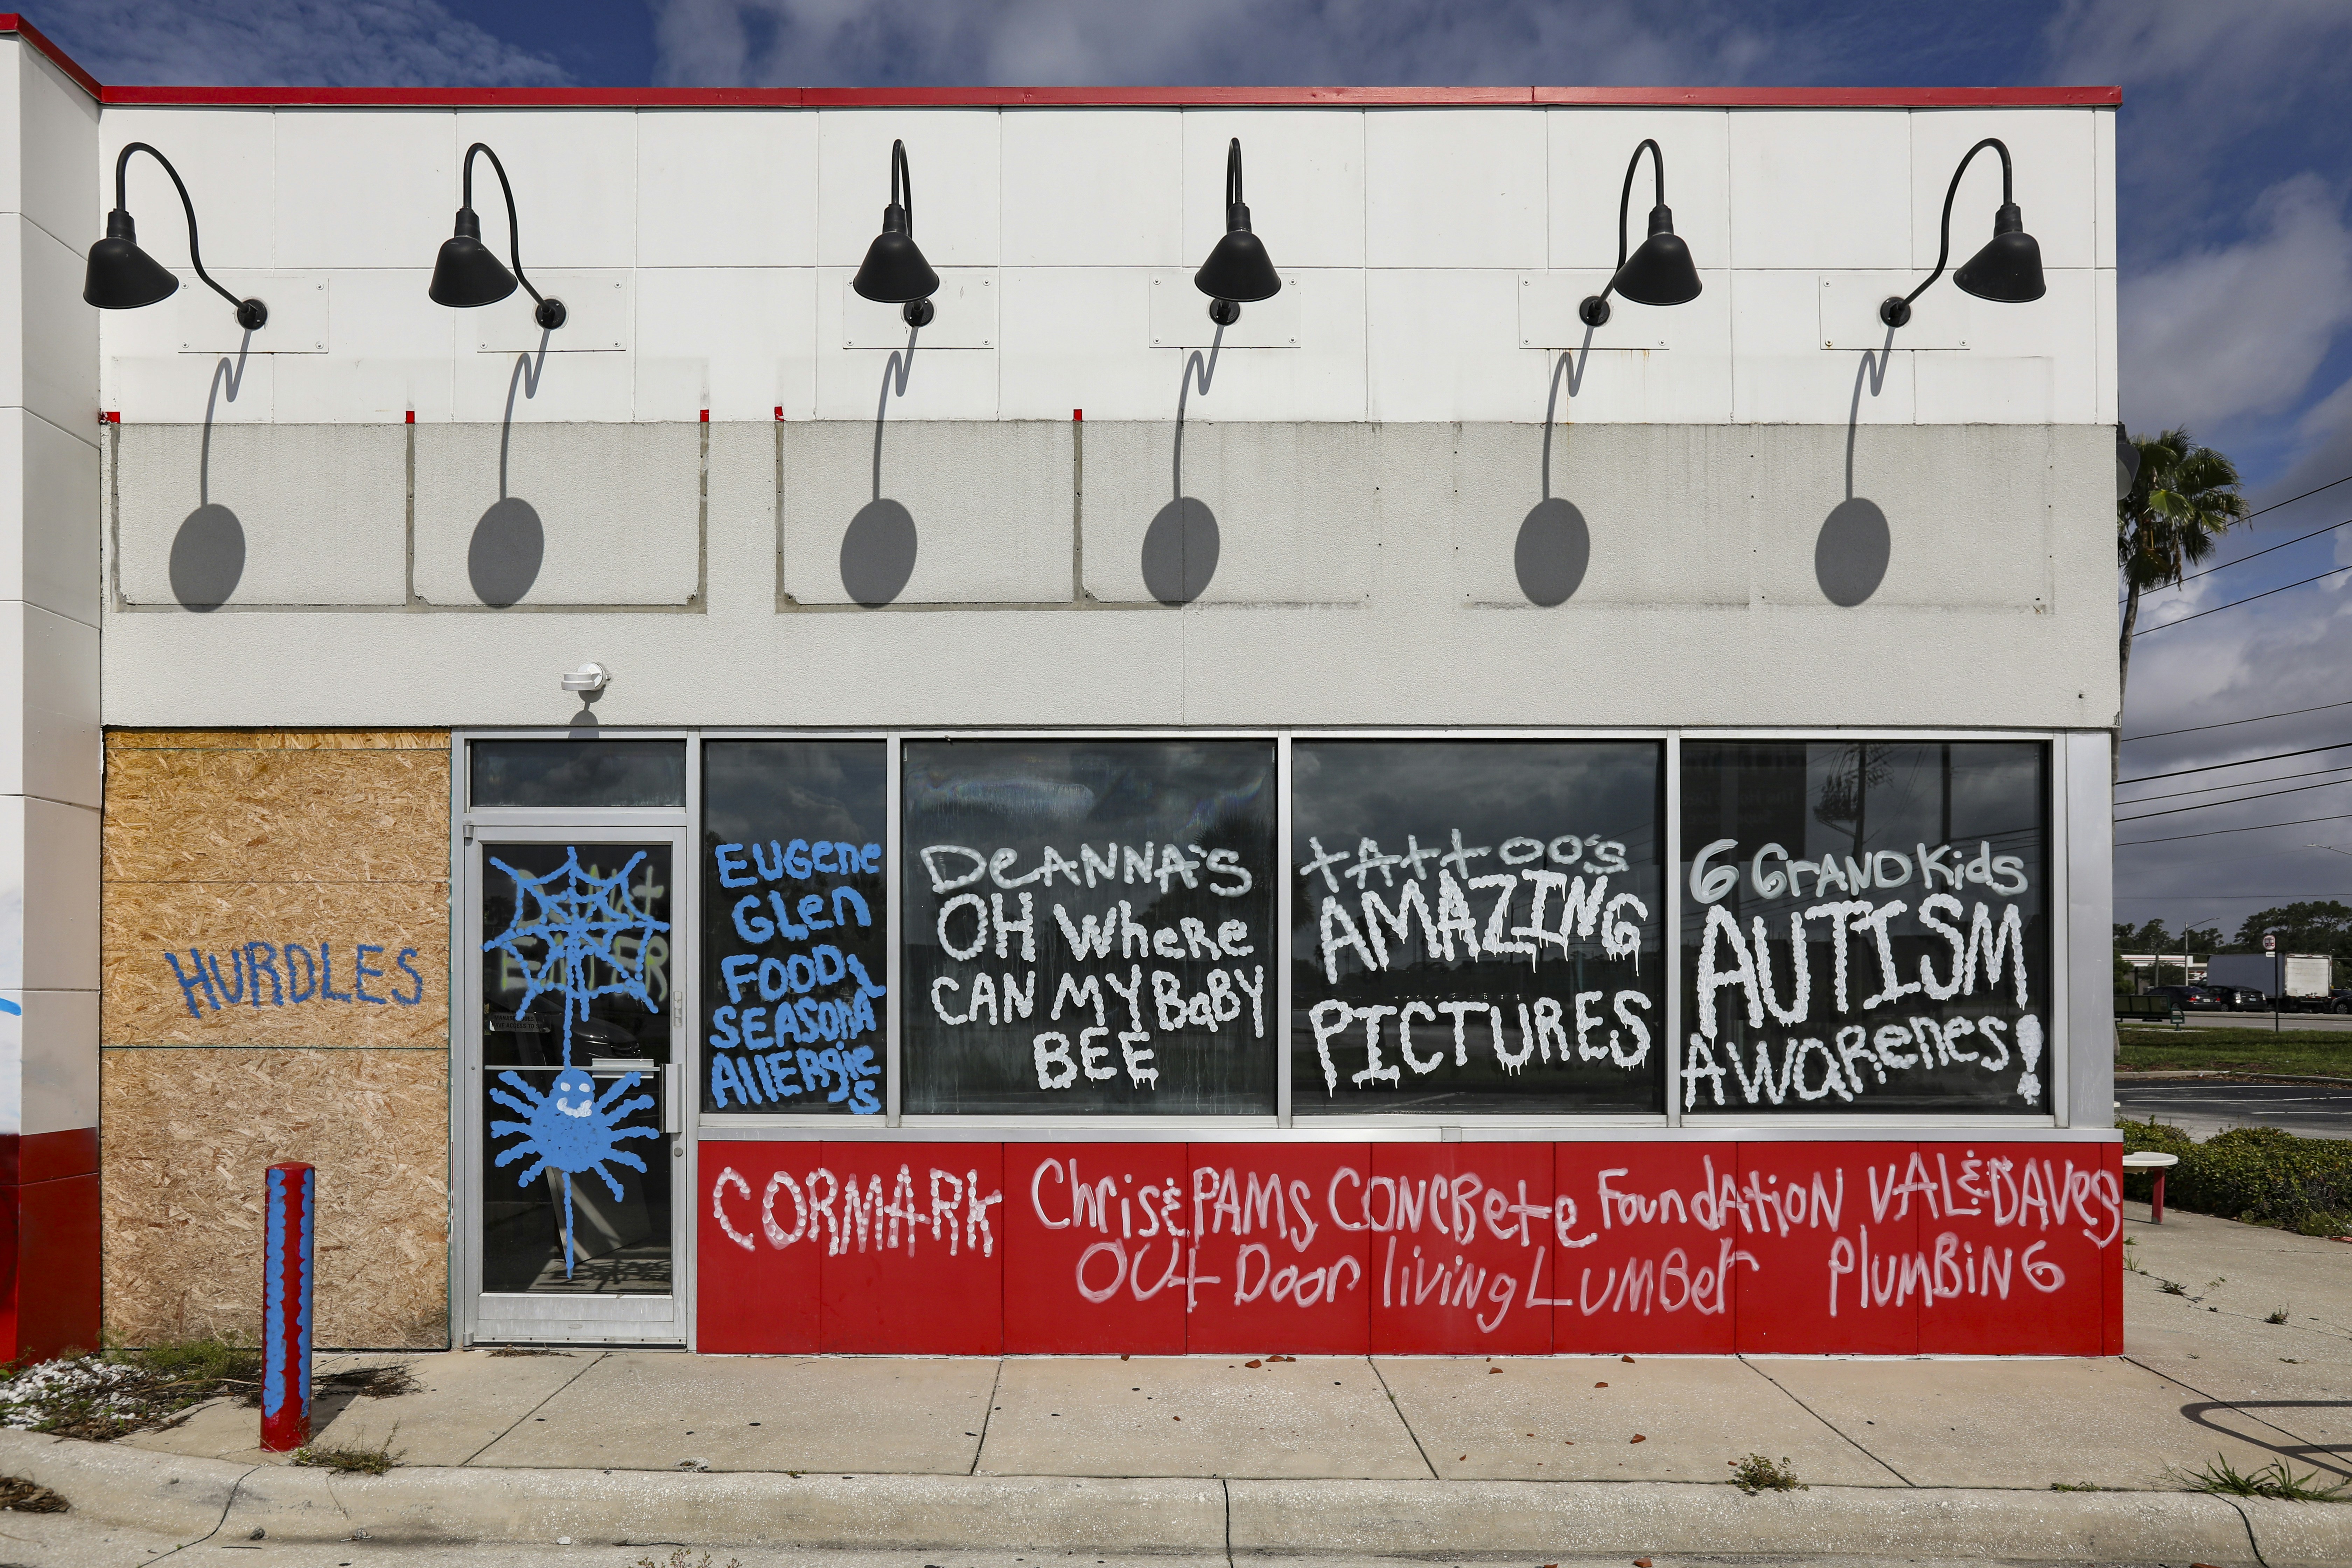 HURDLES
Do Not
ENTER
EUGene
Glen
FOOD,
SEASONA
AllERgie
's
DeANNA'S
OH WheRe
CAN MY BaBY
BEE
tAttoo's
AMAZING
PICTURES
6 GrANDKids
AUTISM
AWARenes!
CORMARK
Chris & PAMs CONCRete Foundation VAL & DAVes
Out Door living LUMBer PlUMBiNG